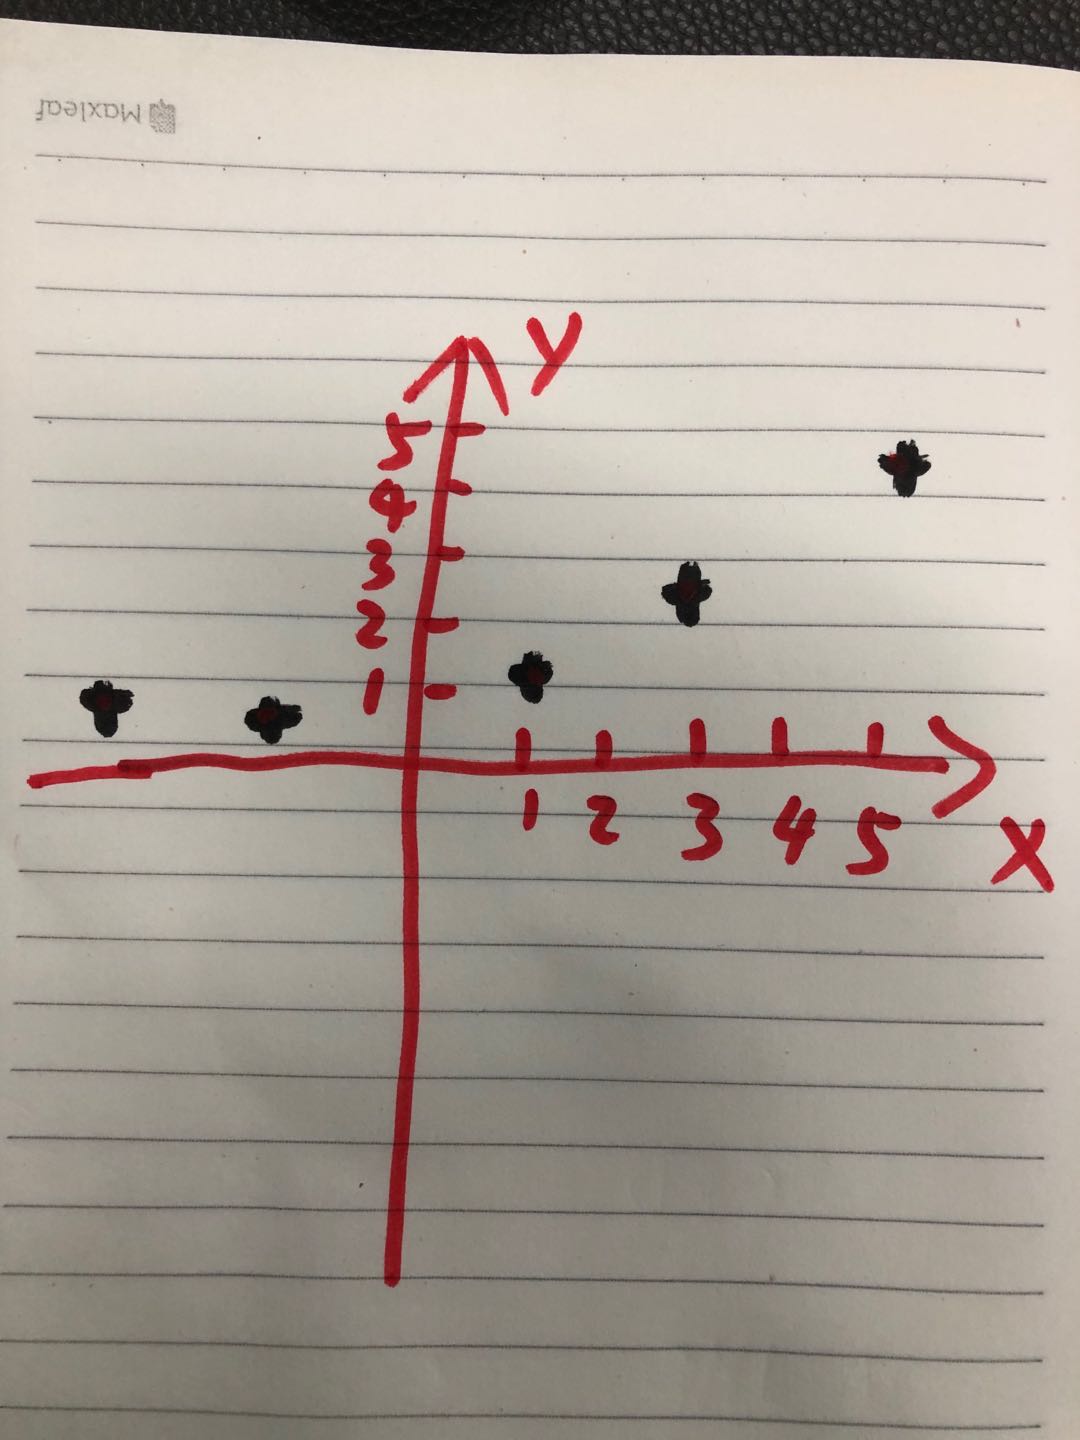 Maxleaf
Y
5
4
3
2
1
1 2 3 4 5
X